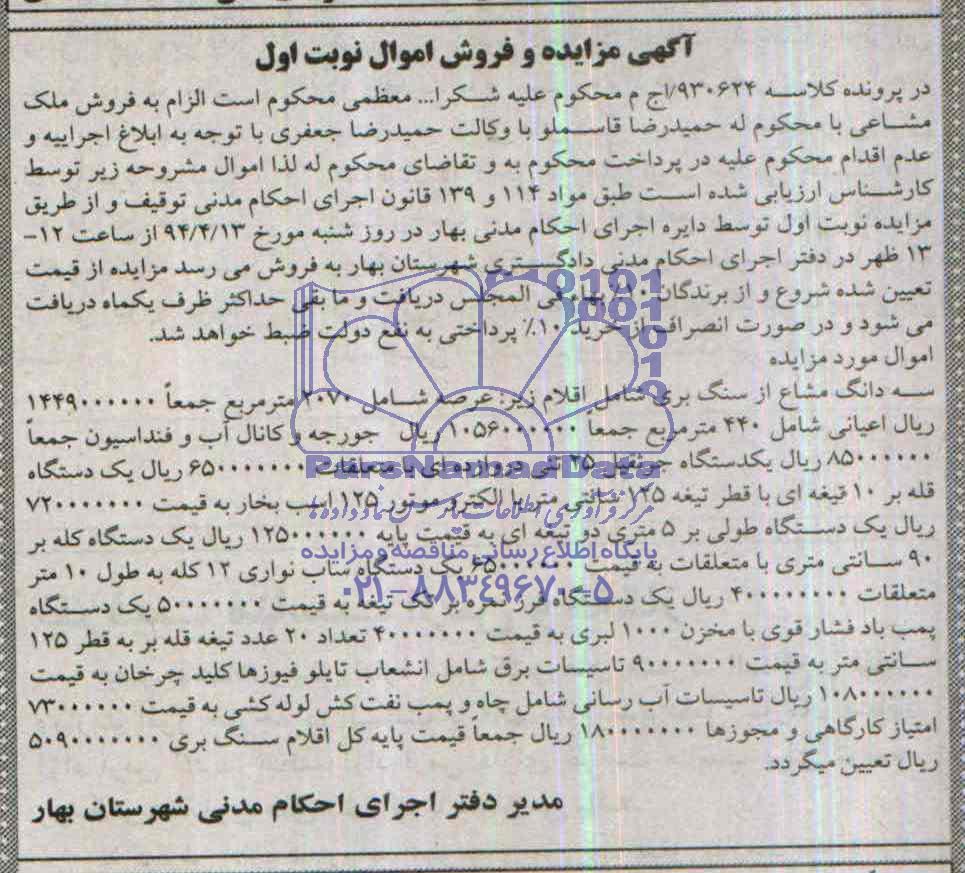 آگهی مزایده و فروش اموال نوبت اول
در پرونده کلاسه ۹۳۰۶۲۴/اج م محکوم علیه شکرا... معظمی محکوم است الزام به فروش ملک
مشاعی با محکوم له حمیدرضا قاسملو با وکالت حمیدرضا جعفری با توجه به ابلاغ اجراییه و
عدم اقدام محکوم علیه در پرداخت محکوم به و تقاضای محکوم له لذا اموال مشروحه زیر توسط
کارشناس ارزیابی شده است طبق مواد ۱۱۴ و ۱۳۹ قانون اجرای احکام مدنی توقیف و از طریق
مزایده نوبت اول توسط دایره اجرای احکام مدنی بهار در روز شنبه مورخ ۹۴/۴/۱۳ از ساعت ۱۲-
۱۳ ظهر در دفتر اجرای احکام مدنی دادگستری شهرستان بهار به فروش می رسد مزایده از قیمت
تعیین شده شروع و از برندگان ۱۰٪ بهاء فی المجلس دریافت و ما بقی حداکثر ظرف یکماه دریافت
می شود و در صورت انصراف از خرید ۱۰٪ پرداختی به نفع دولت ضبط خواهد شد.
اموال مورد مزایده
سه دانگ مشاع از سنگ بری شامل اقلام زیر: عرصه شامل ۲۰۷۰ مترمربع جمعاً ۱۴۴۹۰۰۰۰۰۰
ریال اعیانی شامل ۴۴۰ مترمربع جمعاً ۱۰۵۶۰۰۰۰۰۰ ریال جورجه و کانال آب و فنداسیون جمعاً
۸۵۰۰۰۰۰۰ ریال یکدستگاه جرثقیل ۲۵ تنی دروازه ای با متعلقات ۶۵۰۰۰۰۰۰۰ ریال یک دستگاه
قله بر ۱۰ تیغه ای با قطر تیغه ۱۲۵ سانتی متر با الکترو موتور ۱۲۵ اسب بخار به قیمت ۷۲۰۰۰۰۰۰۰
ریال یک دستگاه طولی بر ۵ متری دو تیغه ای به قیمت پایه ۱۲۵۰۰۰۰۰۰ ریال یک دستگاه کله بر
۹۰ سانتی متری با متعلقات به قیمت ۶۵۰۰۰۰۰۰ یک دستگاه ساب نواری ۱۲ کله به طول ۱۰ متر
متعلقات ۴۰۰۰۰۰۰۰۰ ریال یک دستگاه فرز نمره بر تک تیغه به قیمت ۵۰۰۰۰۰۰۰ یک دستگاه
پمب باد فشار قوی با مخزن ۱۰۰۰ لیری به قیمت ۴۰۰۰۰۰۰۰ تعداد ۲۰ عدد تیغه قله بر به قطر ۱۲۵
سانتی متر به قیمت ۹۰۰۰۰۰۰۰ تاسیسات برق شامل انشعاب تابلو فیوزها کلید چرخان به قیمت
۱۰۸۰۰۰۰۰۰ ریال تاسیسات آب رسانی شامل چاه و پمب نفت کش لوله کشی به قیمت ۷۳۰۰۰۰۰۰
امتیاز کارگاهی و مجوزها ۱۸۰۰۰۰۰۰۰ ریال جمعاً قیمت پایه کل اقلام سنگ بری ۵۰۹۰۰۰۰۰۰۰
ریال تعیین میگردد.
مدیر دفتر اجرای احکام مدنی شهرستان بهار
ParsNamadData
پایگاه اطلاع رسانی مناقصه و مزایده
۰۲۱-۸۸۳۴۹۶۷۰-۵